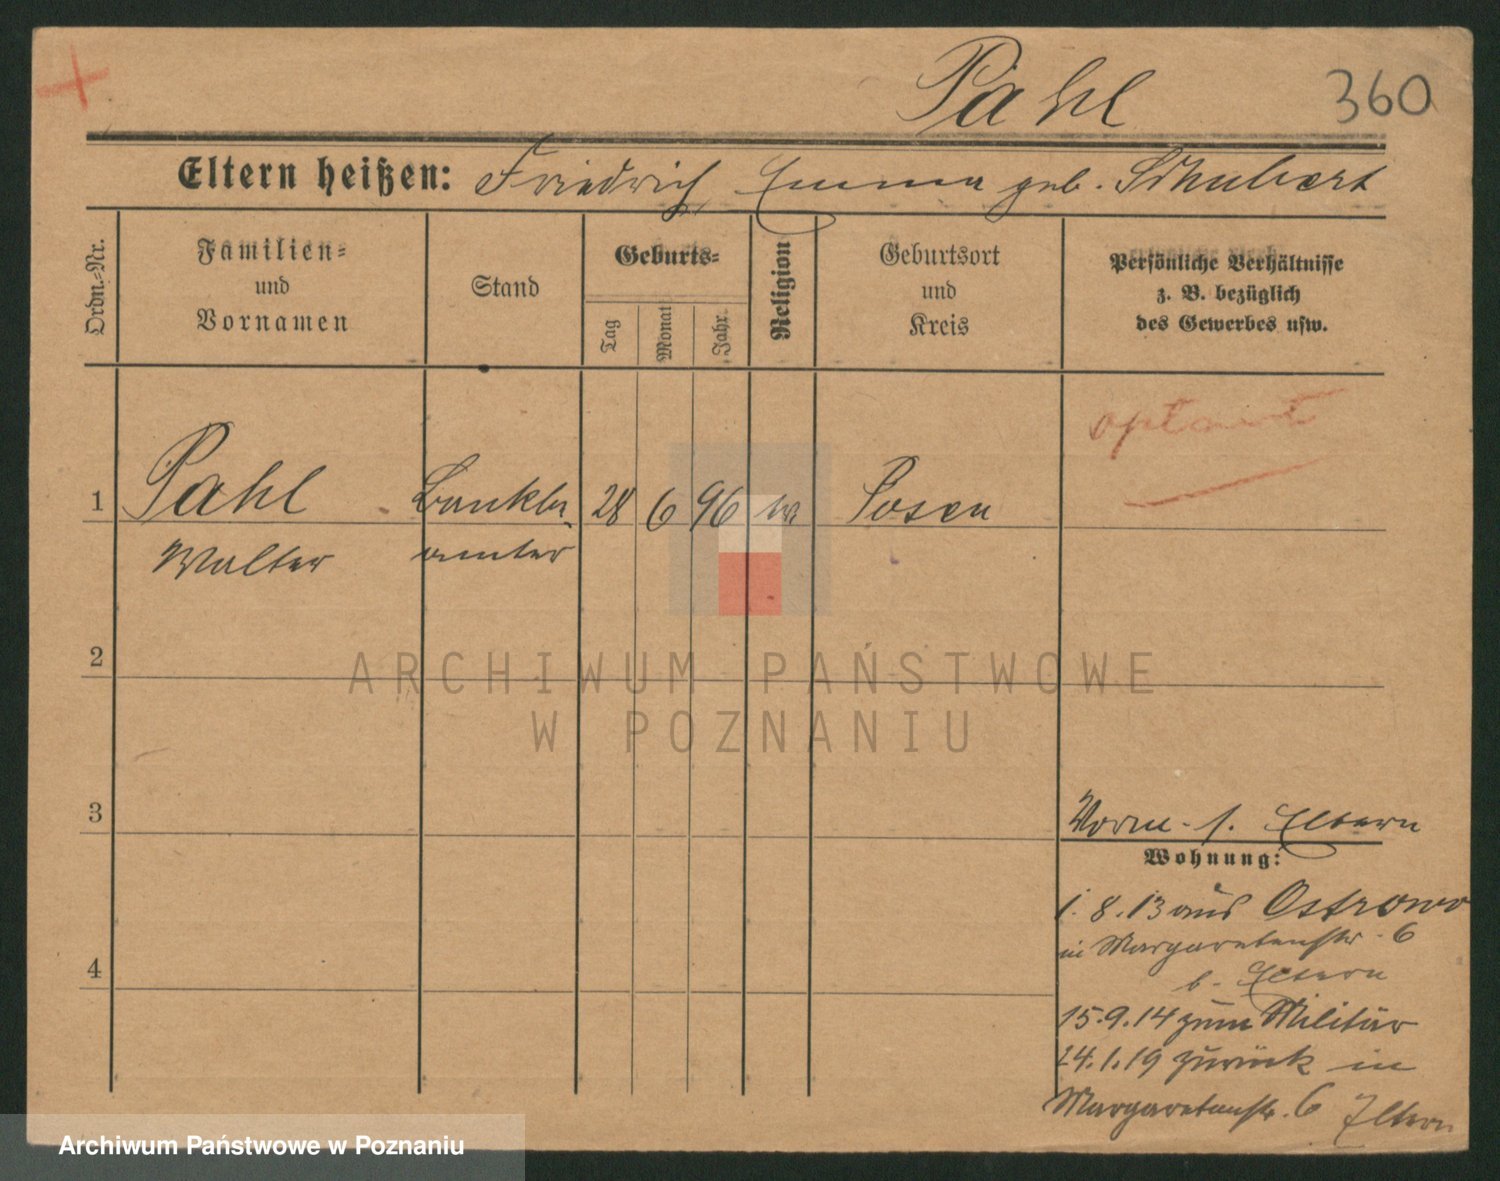 Pahl
360
Eltern heißen: Friedrich Emma geb. Schubert
Ordn.-Nr.
Familien-
und
Vornamen
Stand
Geburts-
Tag
Monat
Jahr
Religion
Geburtsort
und
Kreis
Persönliche Verhältnisse
z. B. bezüglich
des Gewerbes usw.
optant
1 Pahl Bankbe 28 6 96 Posen
Walter amter
2
ARCHIWUM PAŃSTWOWE
W POZNANIU
3
Vorm. s. Eltern
Wohnung:
1.8.13 aus Ostrowo
in Margaretenstr. 6
b. Eltern
4
15.9.14 zum Militär
24.1.19 zurück in
Margaretenstr. 6 Eltern
Archiwum Państwowe w Poznaniu